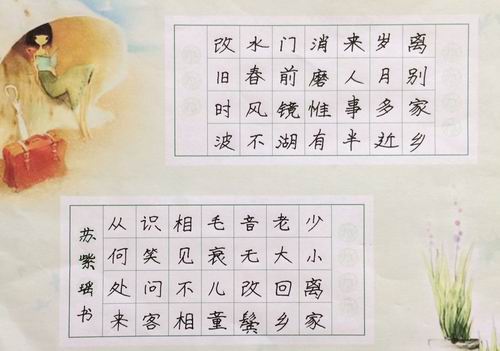 离别家乡
岁月多近
来人事半
消磨惟有
门前镜湖
水春风不
改旧时波
少小离家
老大回乡
音无改鬓
毛衰儿童
相见不相
识笑问客
从何处来
苏紫瑶书